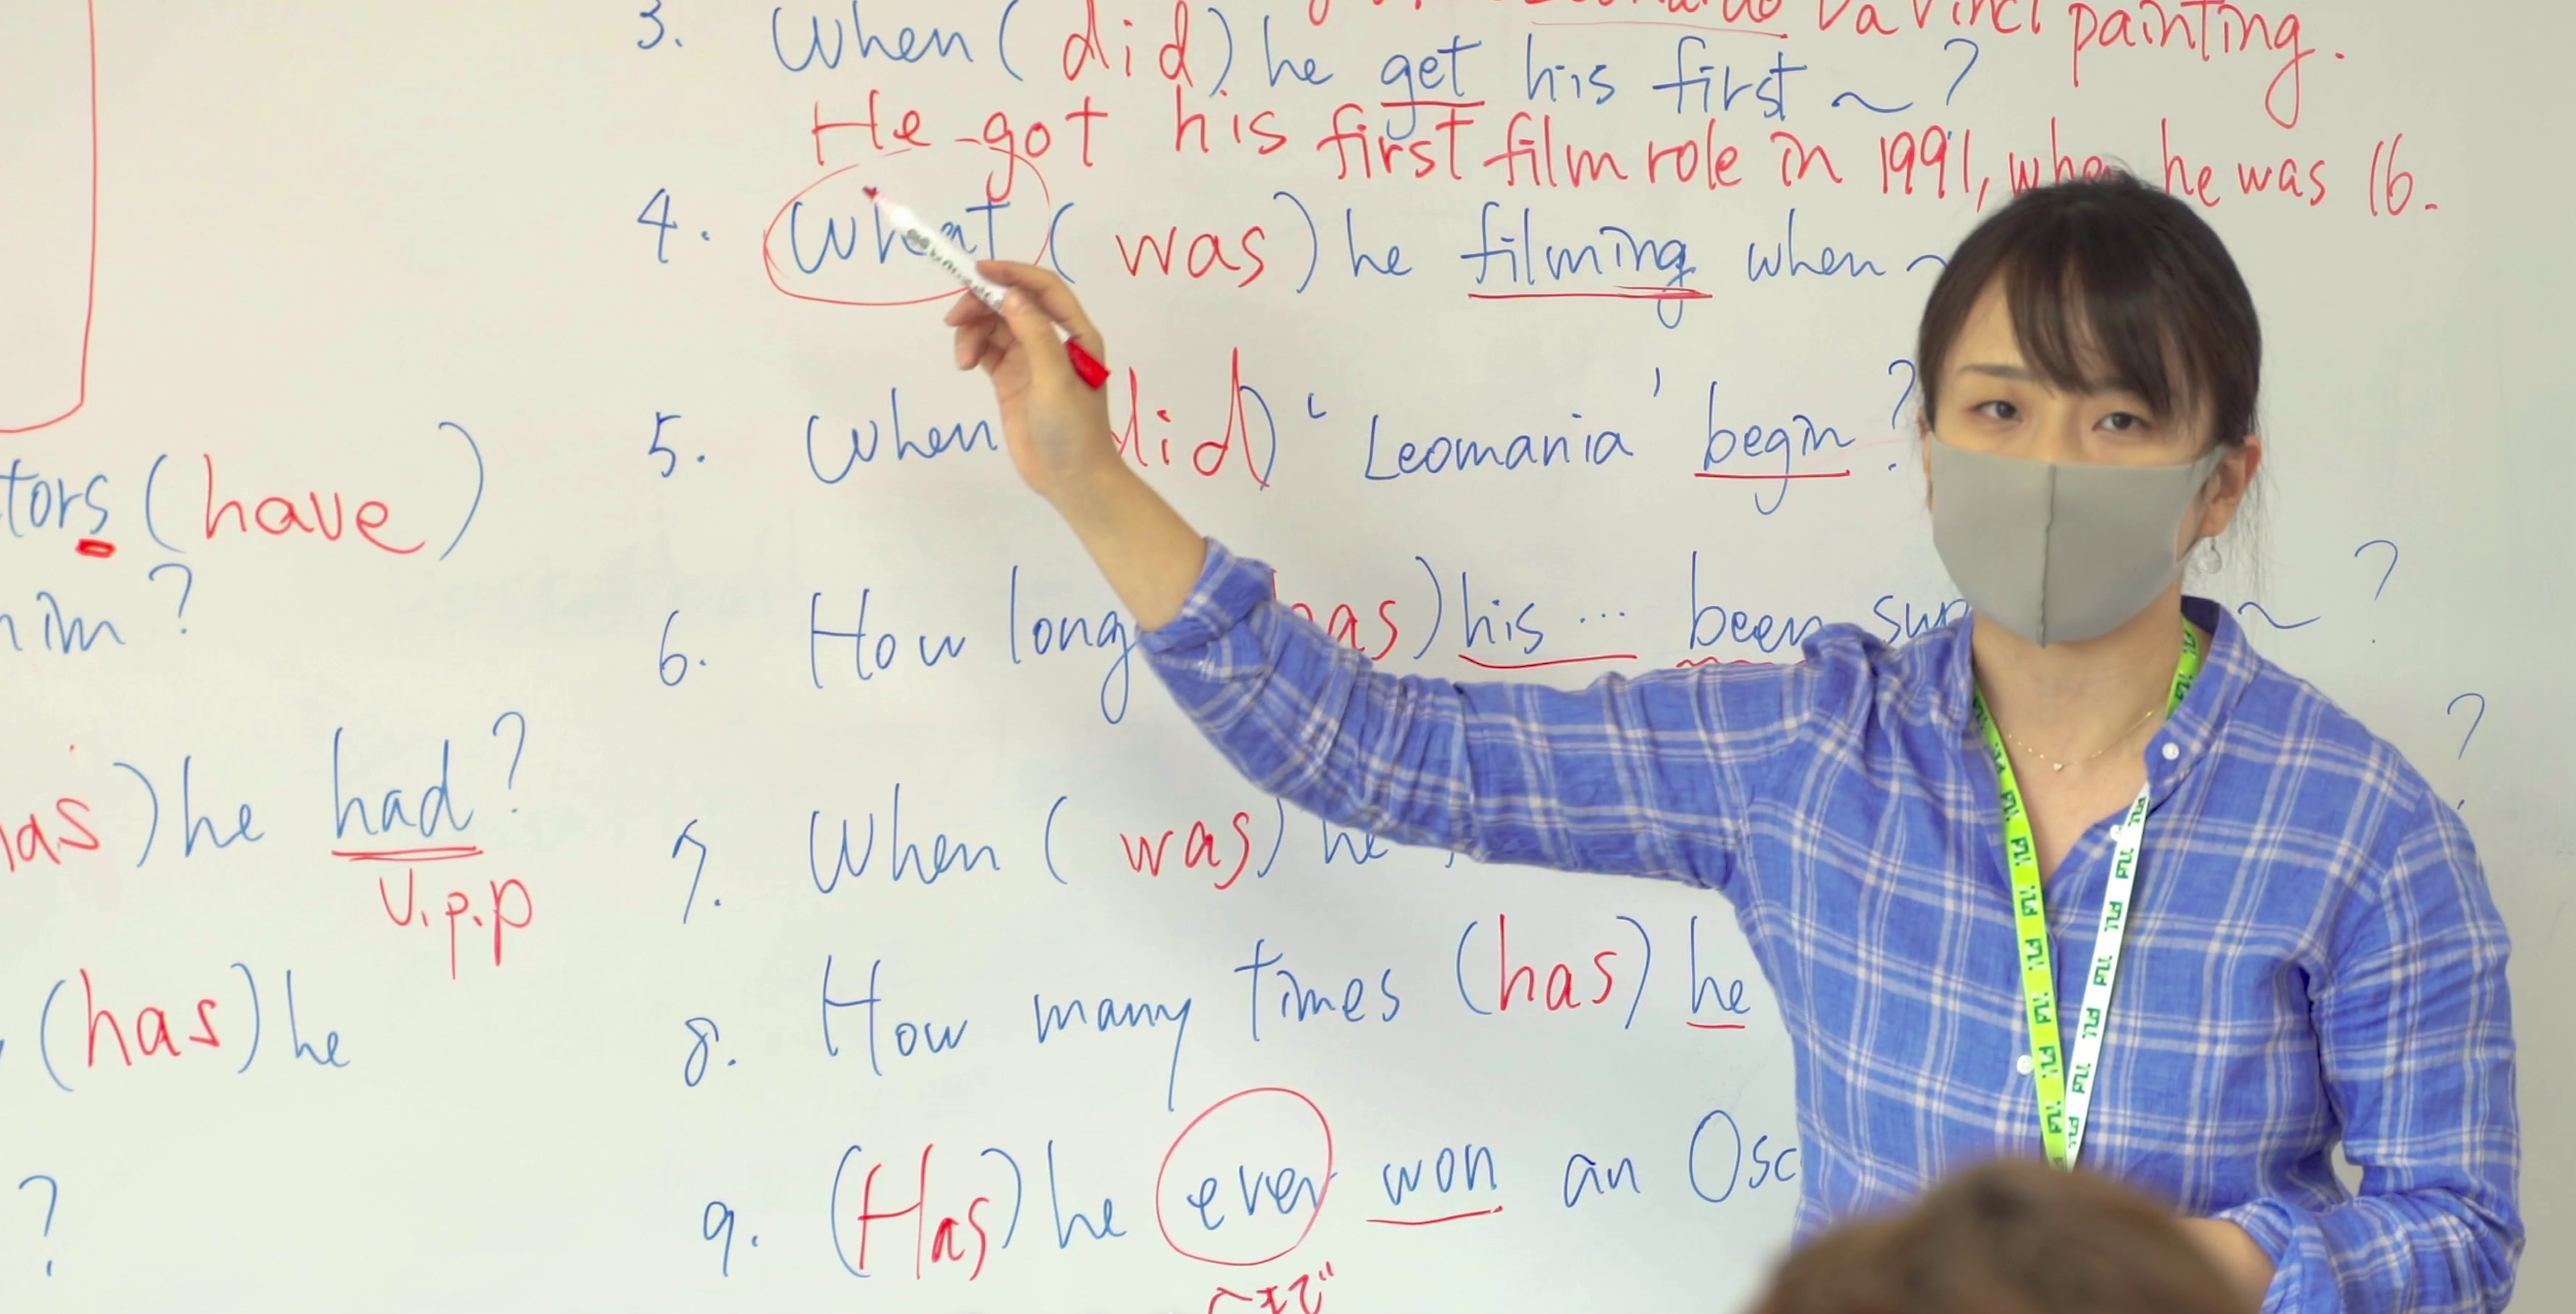 Da Vinci painting.
3. When (did) he get his first ~ ?
He got his first film role in 1991, when he was 16.
4. What (was) he filming when ~
5. When did) 'Leomania' begin?
6. How long has) his ... been ~ ?
?
7. When (was) he
8. How many times (has) he
9. (Has) he ever won an Osc
~まで
tors (have)
him?
has) he had?
v.p.p
(has) he
?